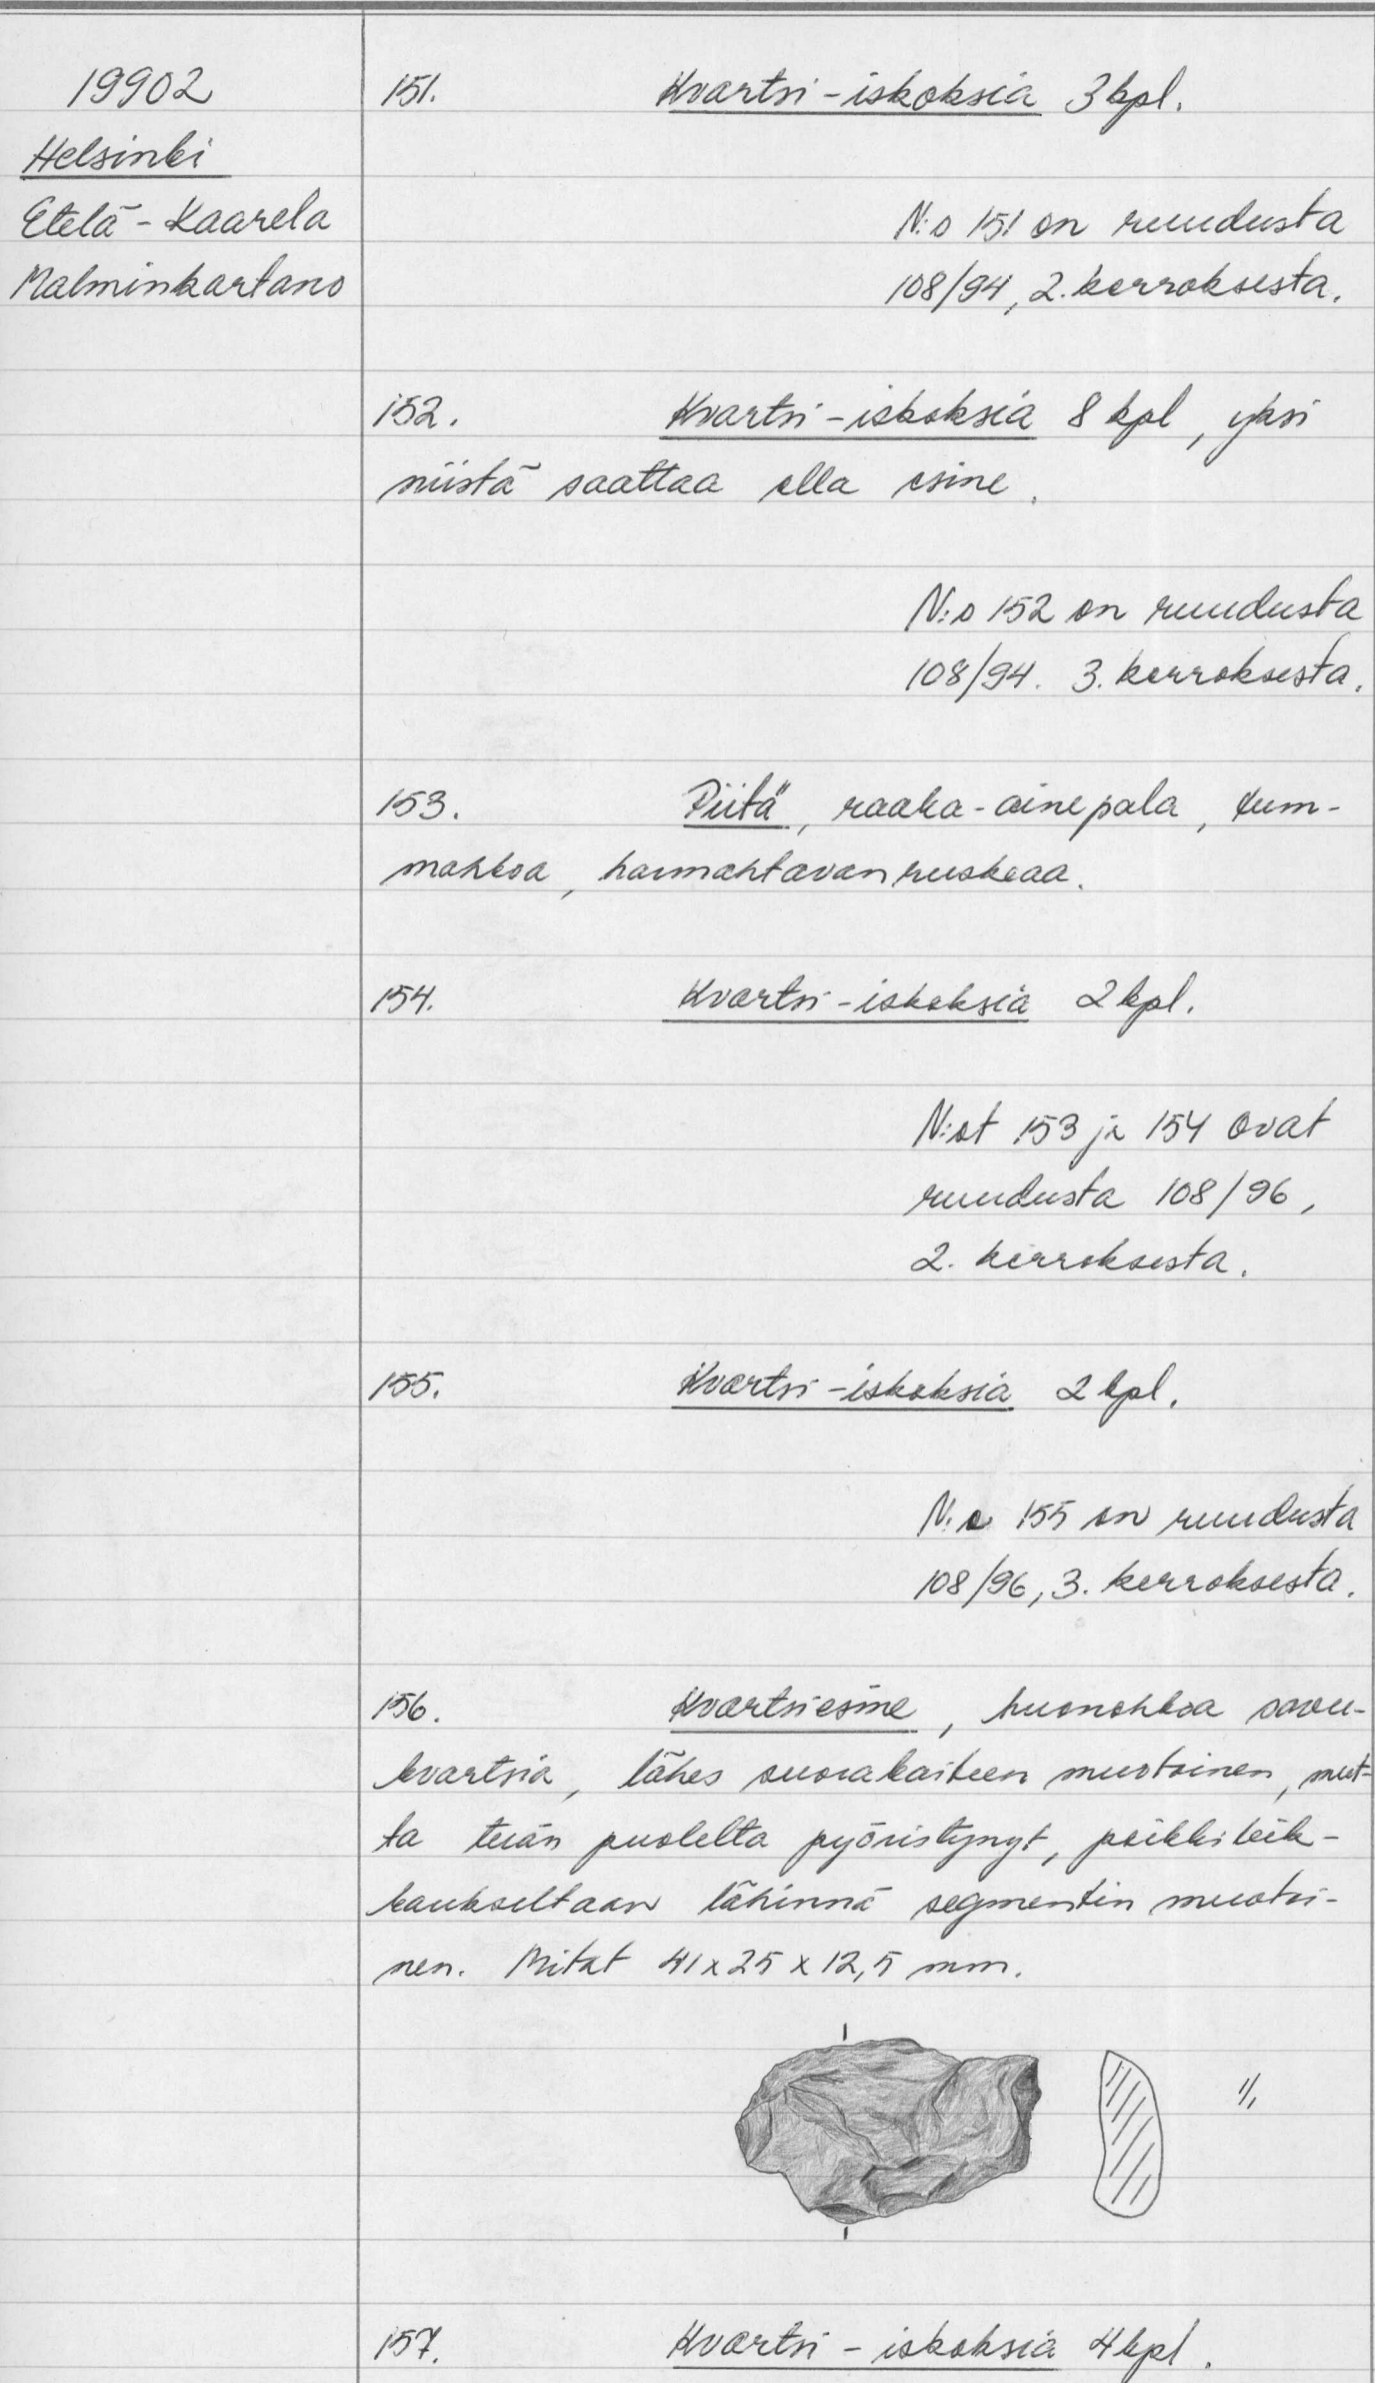 19902
Helsinki
Etelä-Kaarela
Malminkartano
151. Kvartsi-iskoksia 3 kpl.
N:o 151 on ruudusta
108/94, 2. kerroksesta.
152. Kvartsi-iskoksia 8 kpl, yksi
niistä saattaa olla esine.
N:o 152 on ruudusta
108/94. 3. kerroksesta.
153. Piitä, raaka-ainepala, tum-
mahkoa, harmahtavanruskeaa.
154. Kvartsi-iskoksia 2 kpl.
N:ot 153 ja 154 ovat
ruudusta 108/96,
2. kerroksesta.
155. Kvartsi-iskoksia 2 kpl.
N:o 155 on ruudusta
108/96, 3. kerroksesta.
156. Kvartsiesine, huonohkoa savu-
kvartsia, lähes suorakaiteen muotoinen, mut-
ta terän puolelta pyöristynyt, poikkileik-
kaukseltaan lähinnä segmentin muotoi-
nen. Mitat 41 x 25 x 12,5 mm.
1/1
157. Kvartsi-iskoksia 4 kpl.